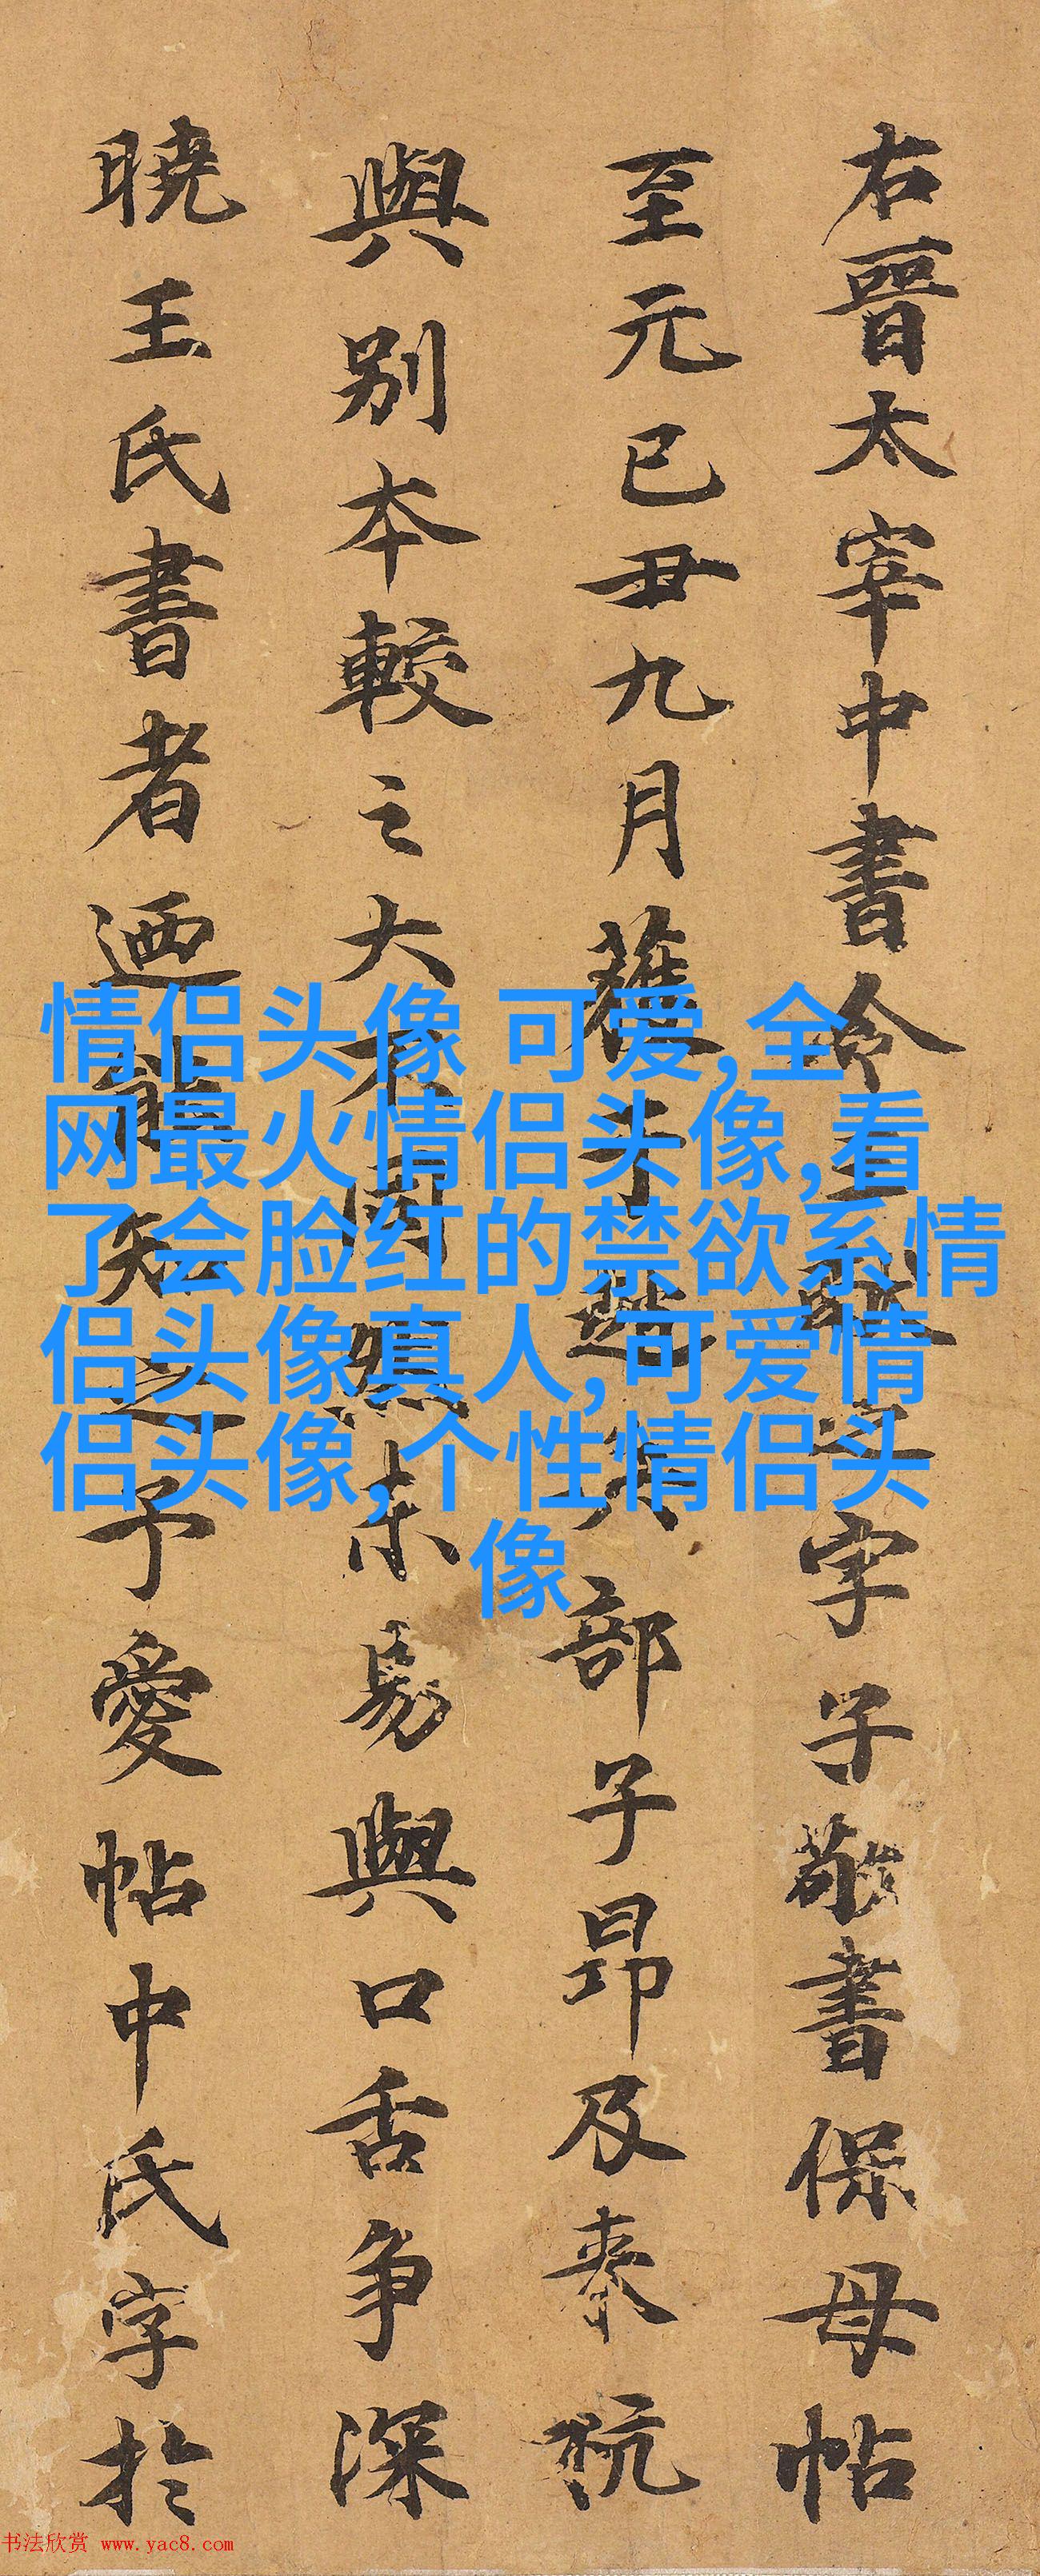 右晉太宰中書令王獻之字子敬書保母帖
至元已丑九月于趙兵部子昂及來杭
與别本較之大不同然未易與口舌爭深
曉王氏書者迺能知之予愛帖中氏字於
情侣头像 可爱,全
网最火情侣头像,看
了会脸红的禁欲系情
侣头像真人,可爱情
侣头像,个性情侣头
像
书法欣赏 www.yac8.com